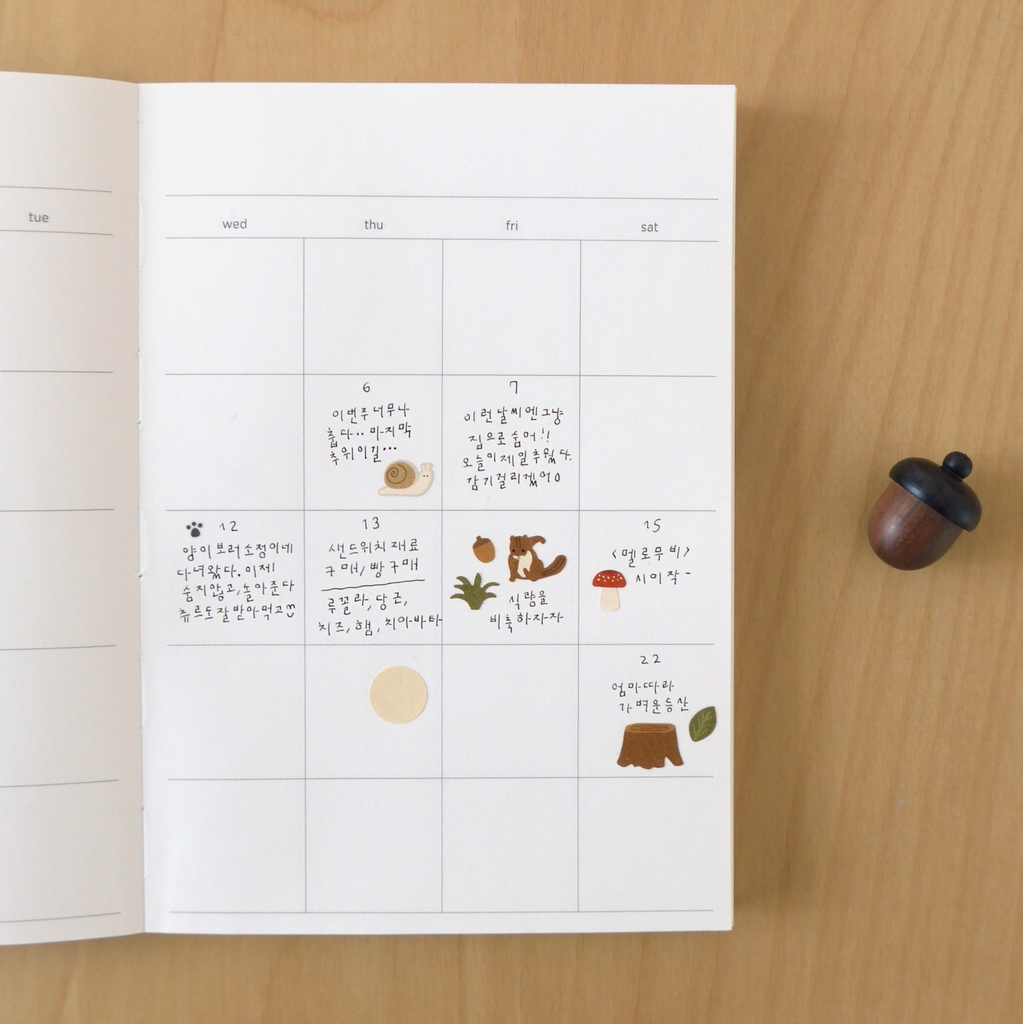 tue
wed thu fri sat
6
이번주 너무나
춥다·· 마지막
추위이길···
7
이런 날씨엔 그냥
집으로 숨어!!
오늘이 제일 추웠다.
감기 걸리겠어o
12
얌이 보러 소정이네
다녀왔다. 이제
숨지않고, 놀아준다
츄르도 잘 받아먹고
13
샌드위치 재료
구매/빵구매
루꼴라, 당근,
치즈, 햄, 치아바타
식량을
비축하자자
15
<멜로무비>
시이작-
22
엄마따라
가벼운 등산